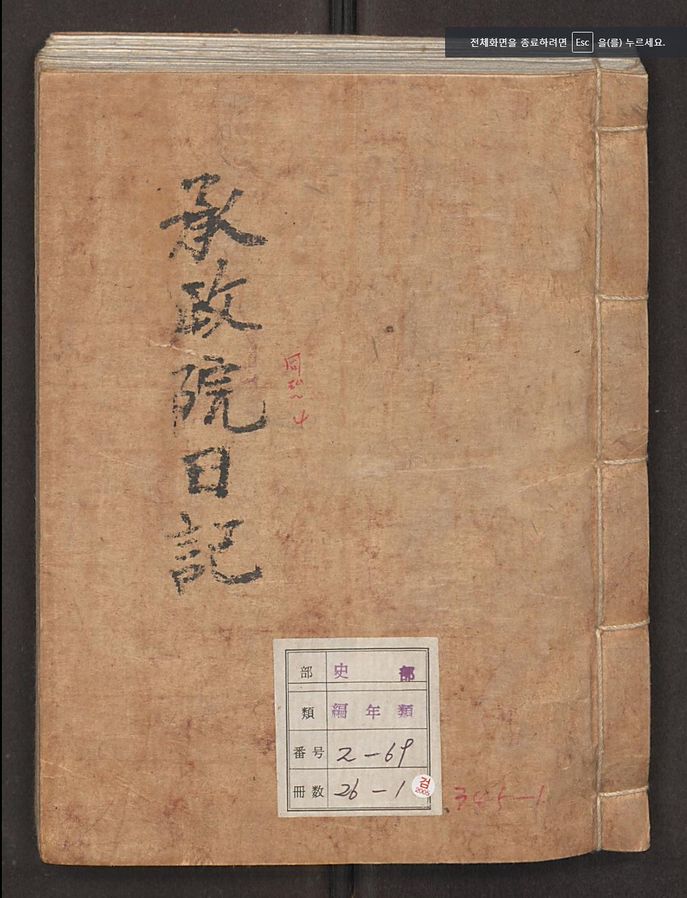 전체화면을 종료하려면 Esc 을(를) 누르세요.
承政院日記
部 史 部
類 編年類
番号 2-69
冊数 26-1
검
2005
345-1